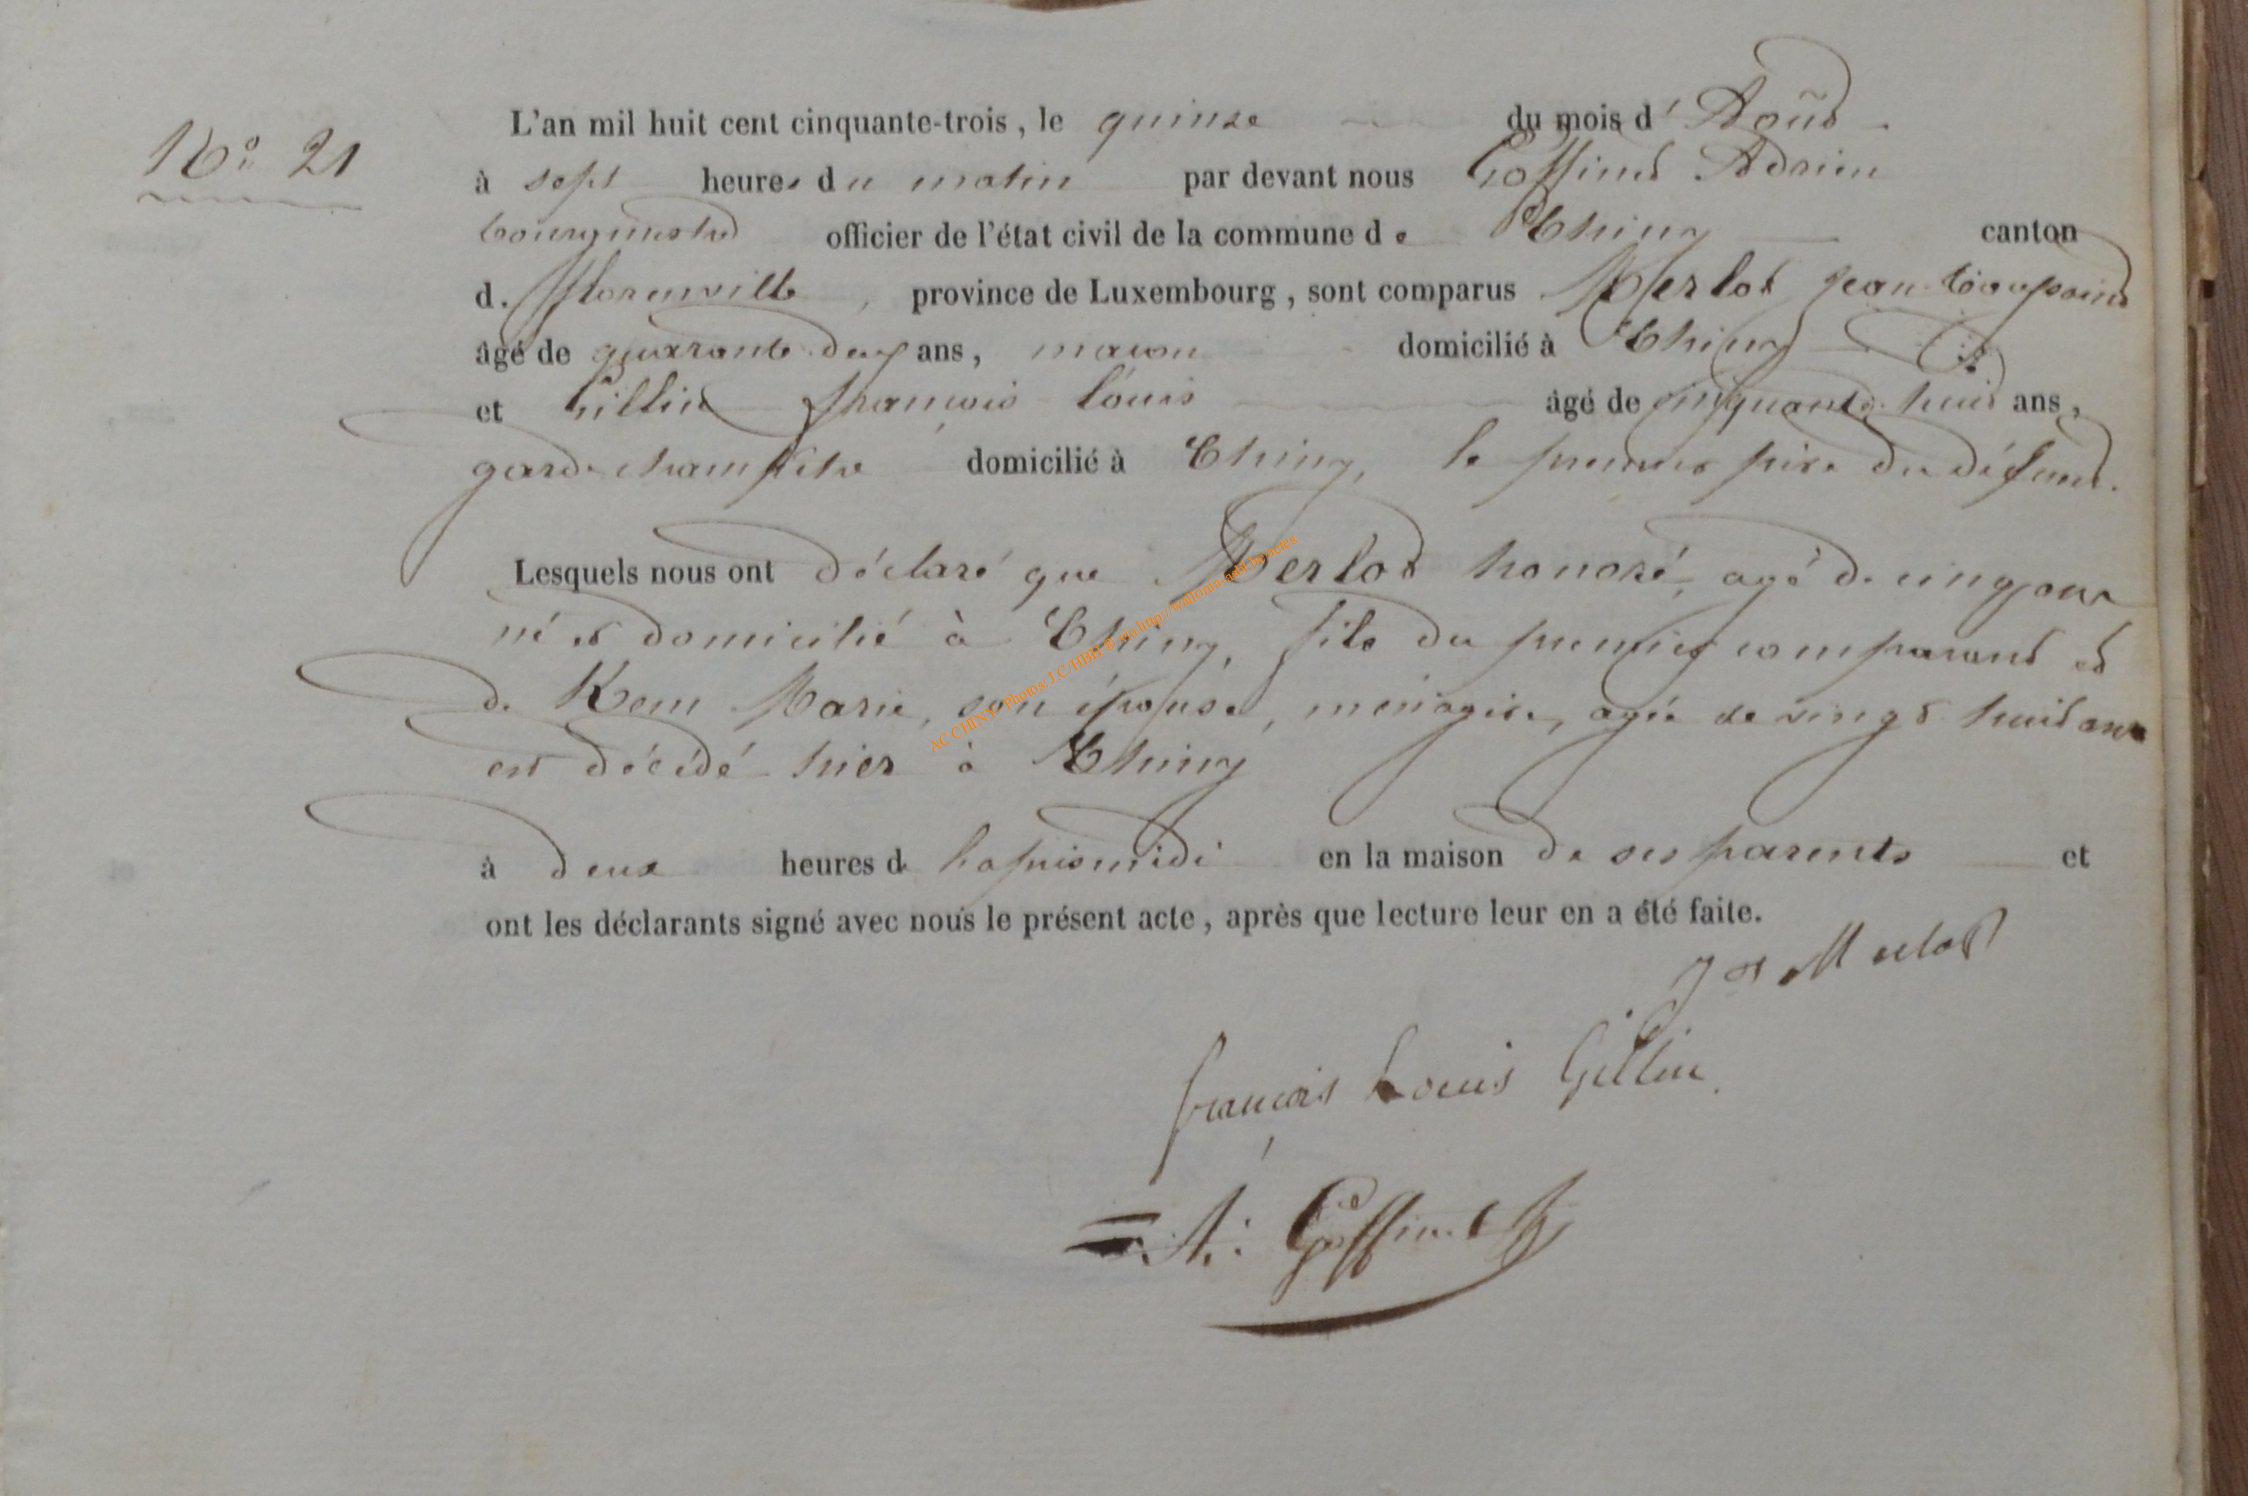 N° 21
L'an mil huit cent cinquante-trois, le quinze du mois d'Août
à sept heures du matin par devant nous Goffinet Adrien
bourgmestre officier de l'état civil de la commune de Chiny canton
de florenville, province de Luxembourg, sont comparus Merlot Jean
âgé de quarante deux ans, maçon domicilié à Chiny
et Gillin françois Louis âgé de cinquante huit ans,
garde champêtre domicilié à Chiny, le premier père du défunt.
Lesquels nous ont déclaré que Merlot honoré, agé de cinq jours
né et domicilié à Chiny, fils du premier comparant et
de Marie, son épouse, ménagère, agée de vingt huit ans
est décédé hier à Chiny
à deux heures de l'aprèsmidi en la maison de ses parents et
ont les déclarants signé avec nous le présent acte, après que lecture leur en a été faite.
Merlot
françois Louis Gillin
A: Goffinet
AC CHINY - Photos J.C/HBH